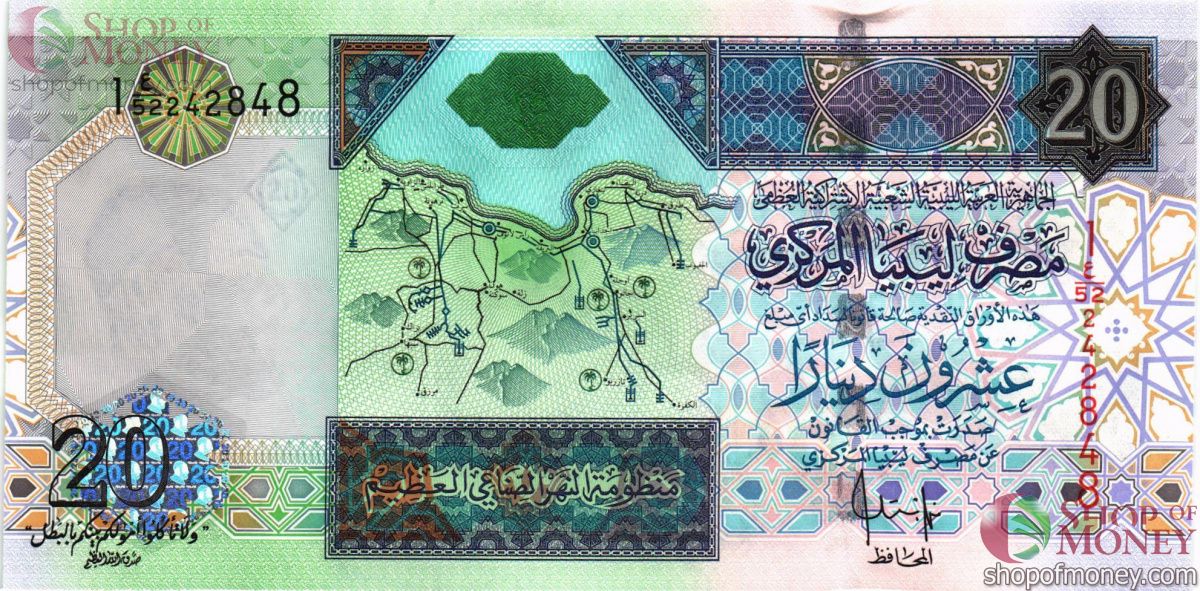 SHOP OF
MONEY
shopofmoney.com
1 ع/52 242848
20
الجماهيرية العربية الليبية الشعبية الاشتراكية العظمى
مصرف ليبيا المركزي
هذه الأوراق النقدية صالحة قانونا لسداد أي مبلغ
عشرون دينارًا
صدرت بموجب القانون
عن مصرف ليبيا المركزي
المحافظ
1 ع/52 242848
زلة
مرزق
تازربو
الكفرة
منظومة النهر الصناعي العظيم
20
"ولا تأكلوا أموالكم بينكم بالباطل"
صدق الله العظيم
SHOP OF
MONEY
shopofmoney.com